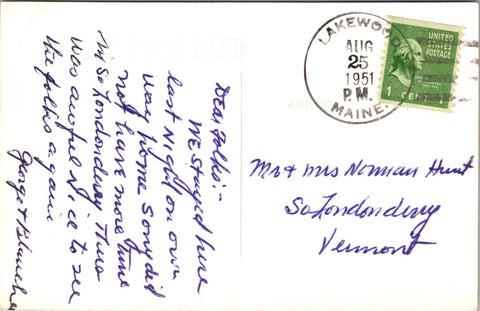 LAKEWOOD
AUG
25
1951
P.M.
MAINE.
UNITED
STATES
POSTAGE
1 CENT
Dear folks:-
We stayed here
last Night on our
way home Sorry did
not have more time
in So Londonderry Thurs
was awful Nice to see
the folks again
George & Blanche
Mr & Mrs Norman Hunt
So Londonderry
Vermont